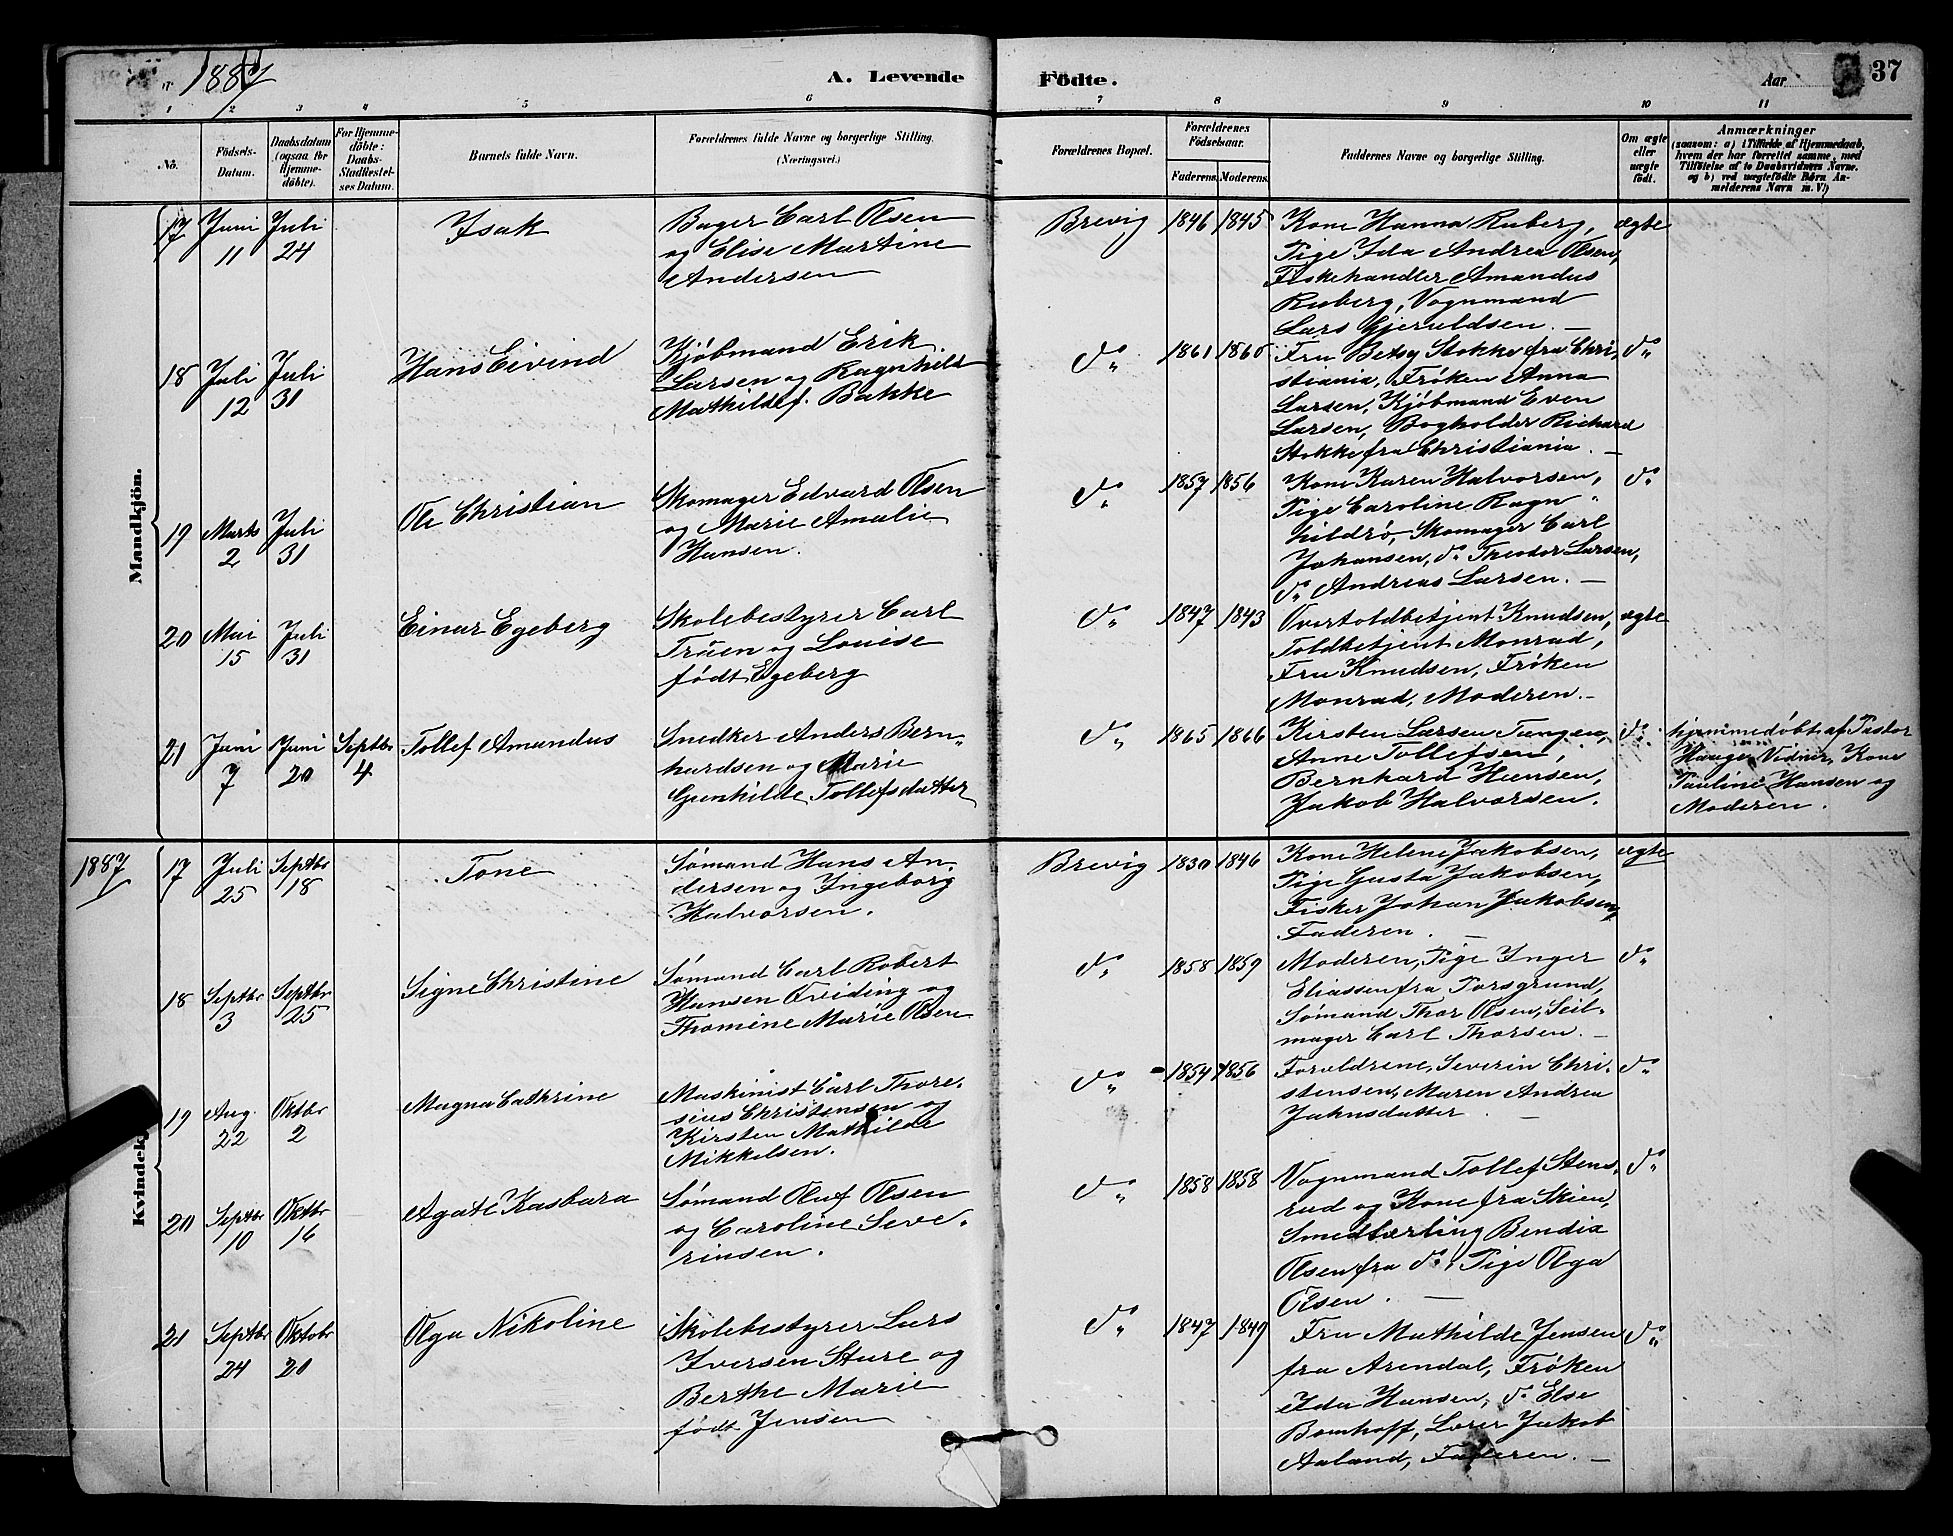 1887
A. Levende
Födte.
Aar
37
1 2 3 4 5 6 7 8 9 10 11
No.
Födsels-
Datum.
Daabsdatum
(ogsaa for
Hjemme-
döbte).
For Hjemme-
döbte:
Daabs-
Stadfæstel-
ses Datum.
Barnets fulde Navn.
Forældrenes fulde Navne og borgerlige Stilling.
(Næringsvei.)
Forældrenes Bopæl.
Forældrenes
Födselsaar.
Faderens.
Moderens.
Faddernes Navne og borgerlige Stilling.
Om ægte
eller
uægte
födt.
Anmærkninger
(saasom: a) i Tilfælde af Hjemmedaab,
hvem der har forrettet samme, med
Tilföielse af to Daabsvidners Navne.
og b) ved uægtefödte Börn An-
melderens Navn m. V.)
Mandkjön.
17
Juni
11
Juli
24
Isak
Bager Carl Olsen
og Elise Martine
Andersen
Brevig
1846
1845
Kone Hanna Ruberg,
Pige Ida Andrea Olsen,
Fiskehandler Amandus
Ruberg, Vognmand
Lars Gjeruldsen. —
ægte
18
Juli
12
Juli
31
Hans Eivind
Kjøbmand Erik
Larsen og Ragnhild
Mathilde f. Bakke
do
1861
1860
Fru Betsy Stokke fra Chri-
stiania, Frøken Anna
Larsen, Kjøbmand Even
Larsen, Bogholder Richard
Stokke fra Christiania. —
do
19
Marts
2
Juli
31
Ole Christian
Skomager Edvard Olsen
og Marie Amalie
Hansen.
do
1857
1856
Kone Karen Halvorsen,
Pige Caroline Ragn-
hildrø, Skomager Carl
Johansen, do Theodor Larsen,
do Andreas Larsen. —
do
20
Mai
15
Juli
31
Einar Egeberg
Skolebestyrer Carl
Tråen og Louise
født Egeberg
do
1847
1843
Overtoldbetjent Knudsen,
Toldbetjent Monrad,
Fru Knudsen, Frøken
Monrad, Moderen. —
ægte
21
Juni
7
Juni
20
Septbr
4
Tollef Amandus
Snedker Anders Bern-
hardsen og Marie
Gunhilde Tollefsdatter
do
1865
1866
Kirsten Larsen Tangen,
Anne Tollefsen,
Bernhard Hansen,
Jakob Halvorsen.
do
hjemmedøbt af Pastor
Hauge, Vidner, Kone
Pauline Hansen og
Moderen.
1887
Kvindek
17
Juli
25
Septbr
18
Tone
Sømand Hans An-
dersen og Ingeborg
Halvorsen.
Brevig
1830
1846
Kone Helene Jakobsen,
Pige Gusta Jakobsen,
Fisker Johan Jakobsen,
Faderen. —
ægte
18
Septbr
3
Septbr
25
Signe Christine
Sømand Carl Robert
Hansen Tveiding og
Thomine Marie Olsen
do
1858
1859
Moderen, Pige Inger
Eliassen fra Porsgrund,
Sømand Thor Olsen, Seil-
mager Carl Thorsen. —
do
19
Aug.
22
Oktbr
2
Magna Cathrine
Maskinist Carl Thore-
sius Christensen og
Kirsten Mathilde
Mikkelsen.
do
1854
1856
Forældrene, Severin Chri-
stensen, Maren Andrea
Jahnsdatter. —
do
20
Septbr
10
Oktbr
16
Agate Kasbara
Sømand Oluf Olsen
og Caroline Seve-
rinsen.
do
1858
1858
Vognmand Tollef Stens-
rud og Kone fra Skien,
Smedlærling Bendix
Olsen fra do, Pige Olga
Olsen. —
do
21
Septbr
24
Oktobr
20
Olga Nikoline
Skolebestyrer Lars
Iversen Sture og
Berthe Marie
født Jensen
do
1847
1849
Fru Mathilde Jensen
fra Arendal, Frøken
Ida Hansen, do Else
Bomhoff, Lærer Jakob
Aaland, Faderen. —
do